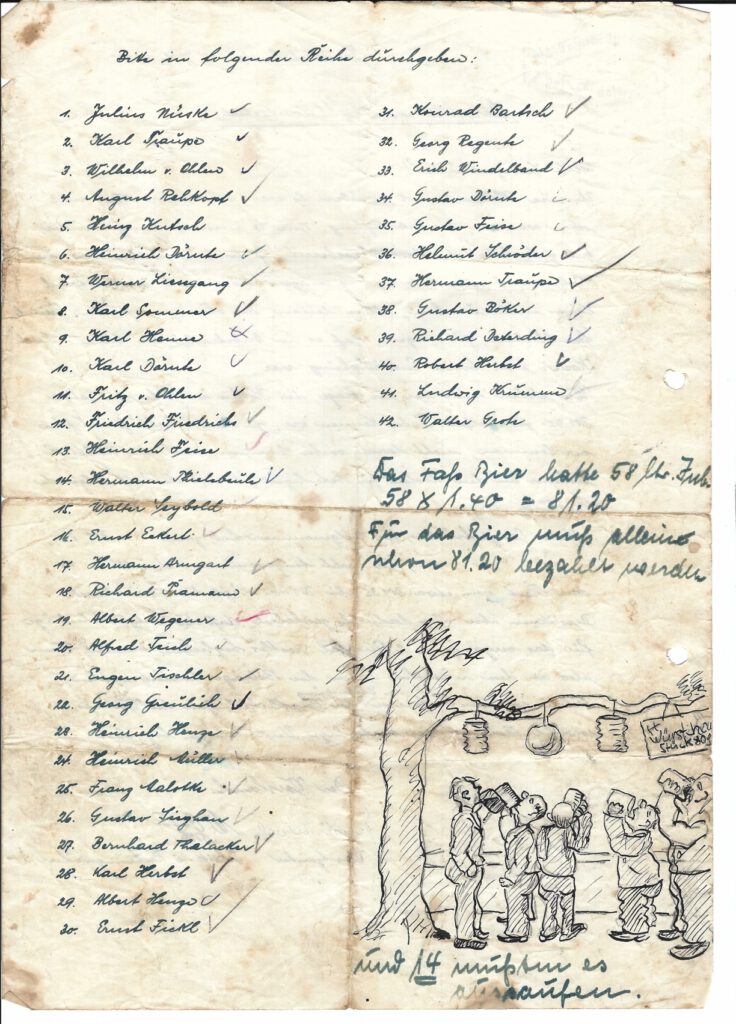 Bitte in folgender Reihe durchgeben:
1. Julius Nüske
2. Karl Traupe
3. Wilhelm v. Ohlen
4. August Rehkopf
5. Heinz Kutsch
6. Heinrich Dörnte
7. Werner Liesegang
8. Karl Sommer
9. Karl Henne
10. Karl Dörnte
11. Fritz v. Ohlen
12. Friedrich Friedrichs
13. Heinrich Feise
14. Hermann Thielebeule
15. Walter Seybold
16. Ernst Eckert
17. Hermann Armgart
18. Richard Tramann
19. Albert Wegener
20. Alfred Teich
21. Eugen Tischler
22. Georg Greulich
23. Heinrich Henze
24. Heinrich Müller
25. Franz
26. Gustav
27. Bernhard Thalacker
28. Karl Herbst
29. Albert Henze
30. Ernst Fickl
31. Konrad Bartsch
32. Georg Regente
33. Erich Windelband
34. Gustav Dörnte
35. Gustav Feise
36. Helmut Schröder
37. Hermann Traupe
38. Gustav Böker
39. Richard Deterding
40. Robert Herbst
41. Ludwig Krumme
42. Walter Grote
Das Faß Bier hatte 58 ltr. Inh.
58 x 1.40 = 81.20
Für das Bier muß alleine
schon 81.20 bezahlt werden
Würstchen
Stück 80
und 14 mußten es
aussaufen.